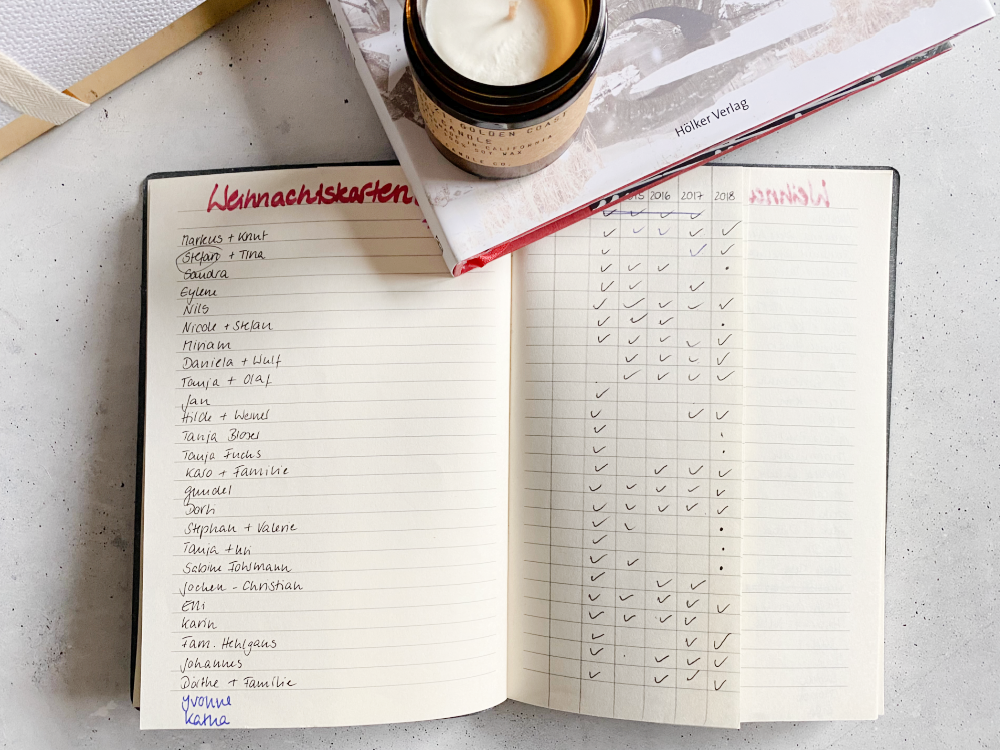 GOLDEN COAST
CANDLE
IN CALIFORNIA
100% SOY WAX
CANDLE CO.
Hölker Verlag
Weihnachtskarten
2016 2017 2018
Weihna
Markus + Knut
Stefan + Tina
Sandra
Eylene
Nils
Nicole + Stefan
Miriam
Daniela + Wulf
Tanja + Olaf
Jan
Hilde + Werner
Tanja
Tanja Fuchs
Karo + Familie
gundel
Dorli
Stephan + Valerie
Tanja + Uli
Sabine
Jochen - Christian
Elli
Karin
Fam.
Johannes
Dörthe + Familie
yvonne
Katha